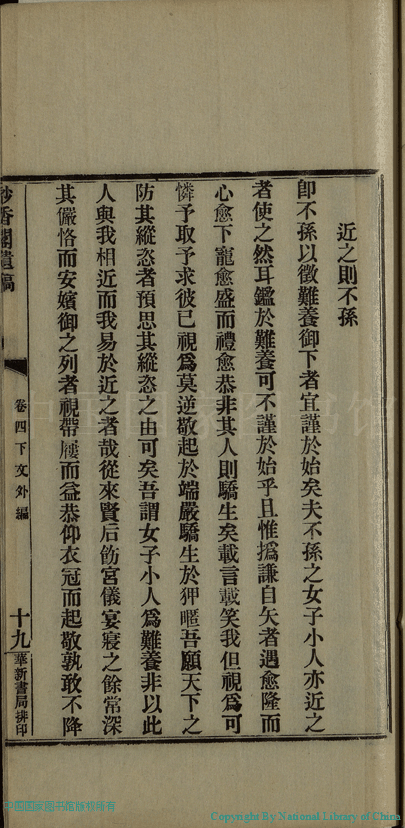 近之則不孫
卽不孫以徵難養御下者宜謹於始矣夫不孫之女子小人亦近之
者使之然耳鑑於難養可不謹於始乎且惟撝謙自矢者遇愈隆而
心愈下寵愈盛而禮愈恭非其人則驕生矣載言載笑我但視爲可
憐予取予求彼已視爲莫逆敬起於端嚴驕生於狎暱吾願天下之
防其縱恣者預思其縱恣之由可矣吾謂女子小人爲難養非以此
人與我相近而我易於近之者哉從來賢后飭宮儀宴寢之餘常深
其儼恪而安嬪御之列者視帶履而益恭仰衣冠而起敬孰敢不降
香閣遺稿
卷四下文外編
十九
華新書局排印
中国国家图书馆
中国国家图书馆版权所有
Copyright By National Library of China